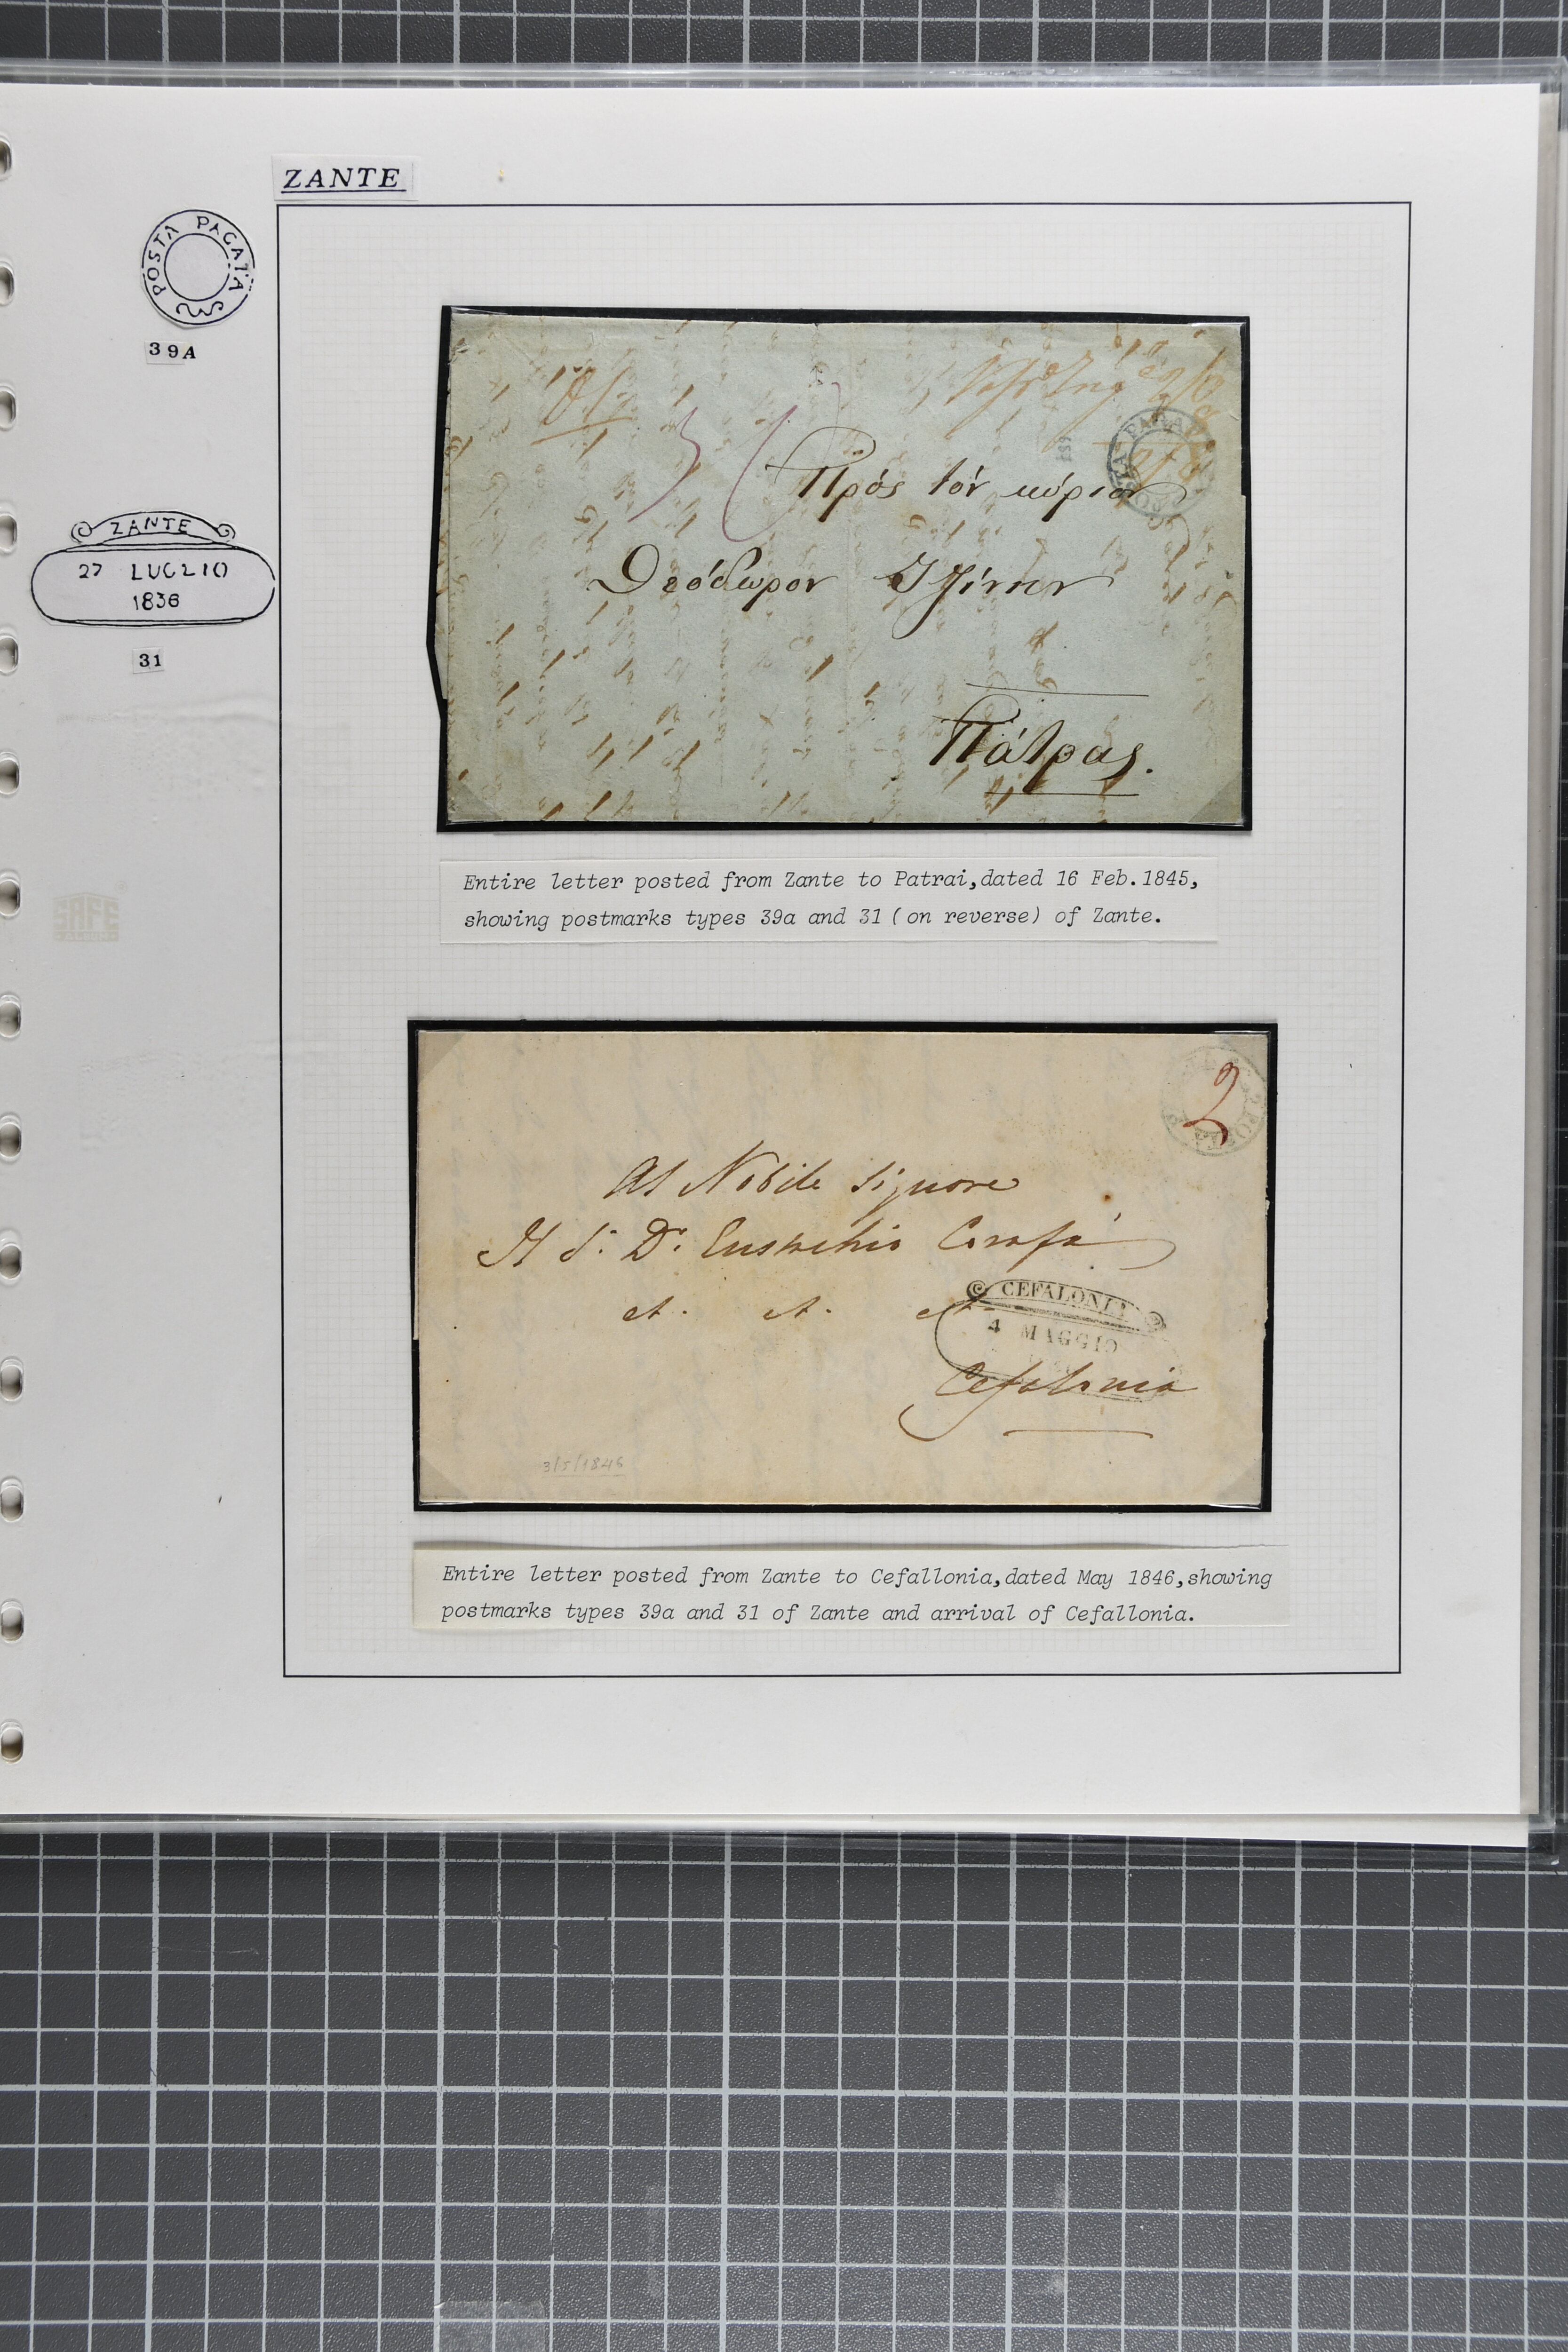 ZANTE
POSTA PAGATA
39A
ZANTE
27 LUGLIO
1836
31
SAFE
Πρός τόν κύριον
Θεόδωρον
Πάτρας.
Entire letter posted from Zante to Patrai, dated 16 Feb. 1845,
showing postmarks types 39a and 31 (on reverse) of Zante.
2
Al Nobile Signore
Il S. Dr. Eustachio Carafà
et. et. et.
CEFALONIA
4 MAGGIO
Cefalonia
3/5/1846
Entire letter posted from Zante to Cefallonia, dated May 1846, showing
postmarks types 39a and 31 of Zante and arrival of Cefallonia.